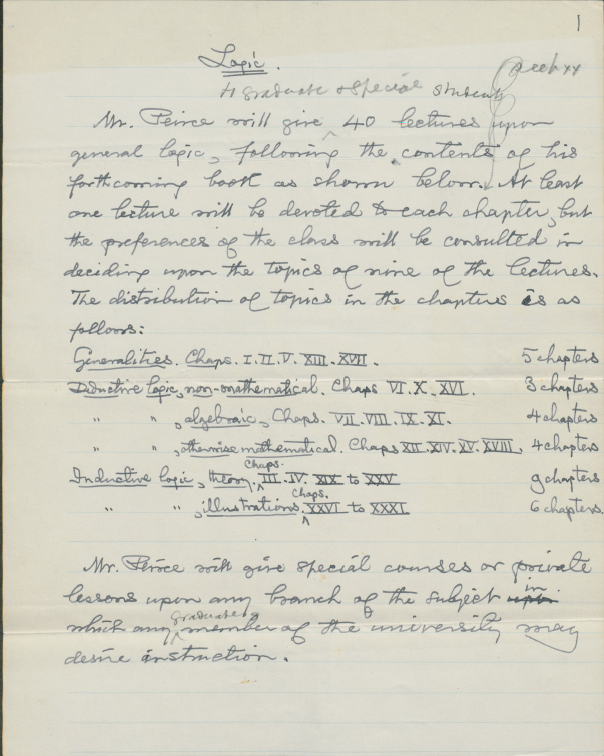 1
Logic.
4 graduate & special students
Mr. Peirce will give 40 lectures upon
general logic, following the contents of his
forthcoming book as shown below. At least
one lecture will be devoted to each chapter, but
the preferences of the class will be consulted in
deciding upon the topics of nine of the lectures.
The distribution of topics in the chapters is as
follows:
Generalities. Chaps. I. II. V. XIII. XVII. 5 chapters
Deductive logic, non-mathematical. Chaps VI. X. XVI. 3 chapters
" " , algebraic, Chaps. VII. VIII. IX. XI. 4 chapters
" " , otherwise mathematical. Chaps XII. XIV. XV. XVIII, 4 chapters
Chaps.
Inductive logic, theory. III. IV. XIX to XXV 9 chapters
Chaps.
" " , illustrations. XXVI to XXXI 6 chapters.
Mr. Peirce will give special courses or private
lessons upon any branch of the subject upon in
graduate
which any member of the university may
desire instruction.